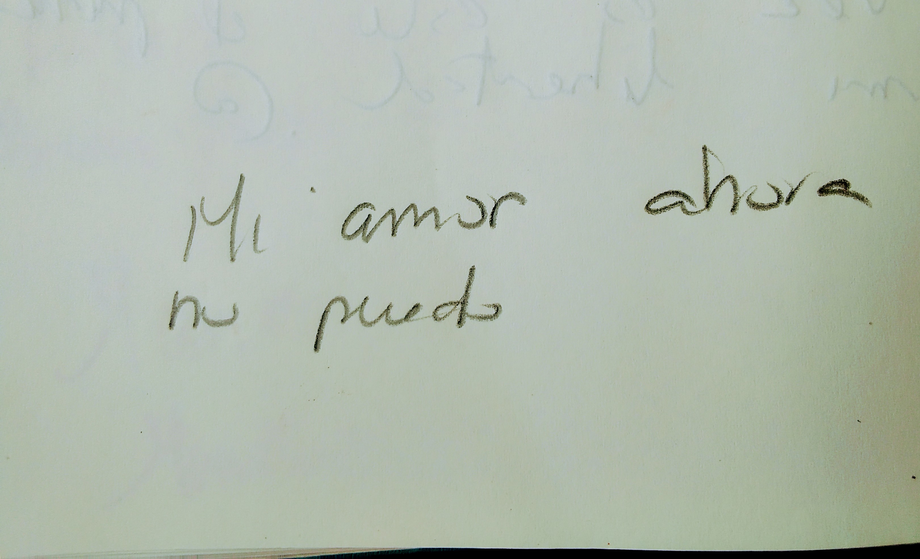 Mi amor ahora
no puedo